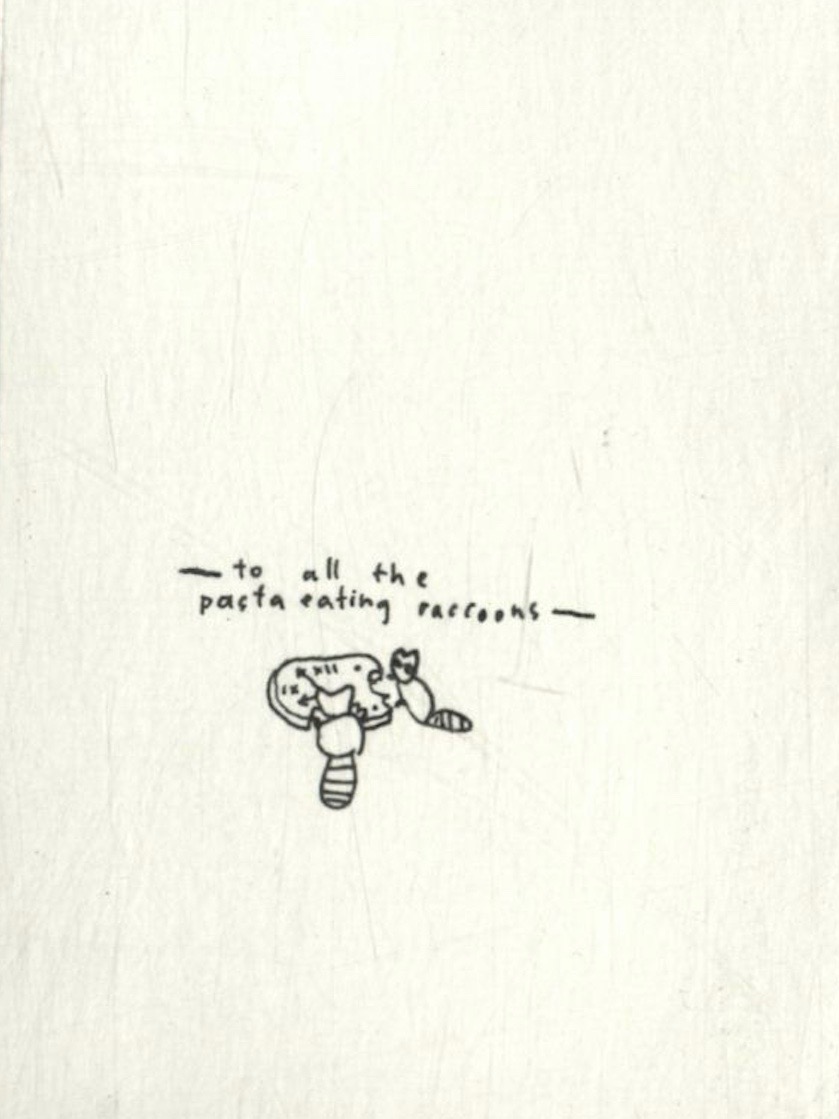 — to all the
pasta eating raccoons —
XII
IX